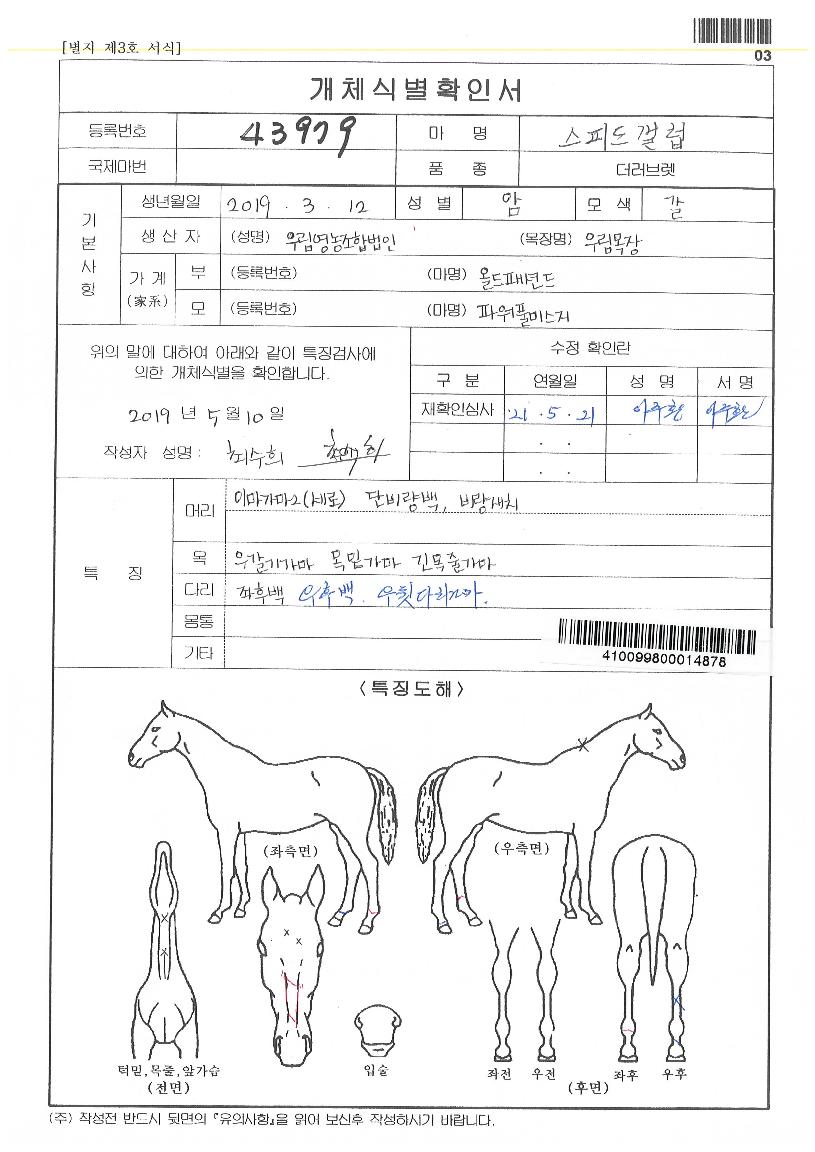 [별지 제3호 서식]
03
개체식별확인서
등록번호 43979 마 명 스피드갤럽
국제마번 품 종 더러브렛
기본사항
생년월일 2019 . 3 . 12 성 별 암 모 색 갈
생 산 자 (성명) 우림영농조합법인 (목장명) 우림목장
가 계 (家系) 부 (등록번호) (마명) 올드패션드
모 (등록번호) (마명) 파워풀미스지
위의 말에 대하여 아래와 같이 특징검사에
의한 개체식별을 확인합니다.
2019 년 5 월 10 일
작성자 성명 : 최수희
수정 확인란
구 분 연월일 성 명 서 명
재확인심사 '21 . 5 . 21 이주환 이주환
. .
. .
특 징
머리 이마가마2(세로) 단비량백, 비량새치
목 우갈기가마 목밑가마 긴목줄가마
다리 좌후백 우후백. 우뒷다리가마.
몸통
기타
410099800014878
<특징도해>
(좌측면) (우측면)
턱밑,목줄,앞가슴
(전면)
입술
좌전 우전 좌후 우후
(후면)
(주) 작성전 반드시 뒷면의 『유의사항』을 읽어 보신후 작성하시기 바랍니다.